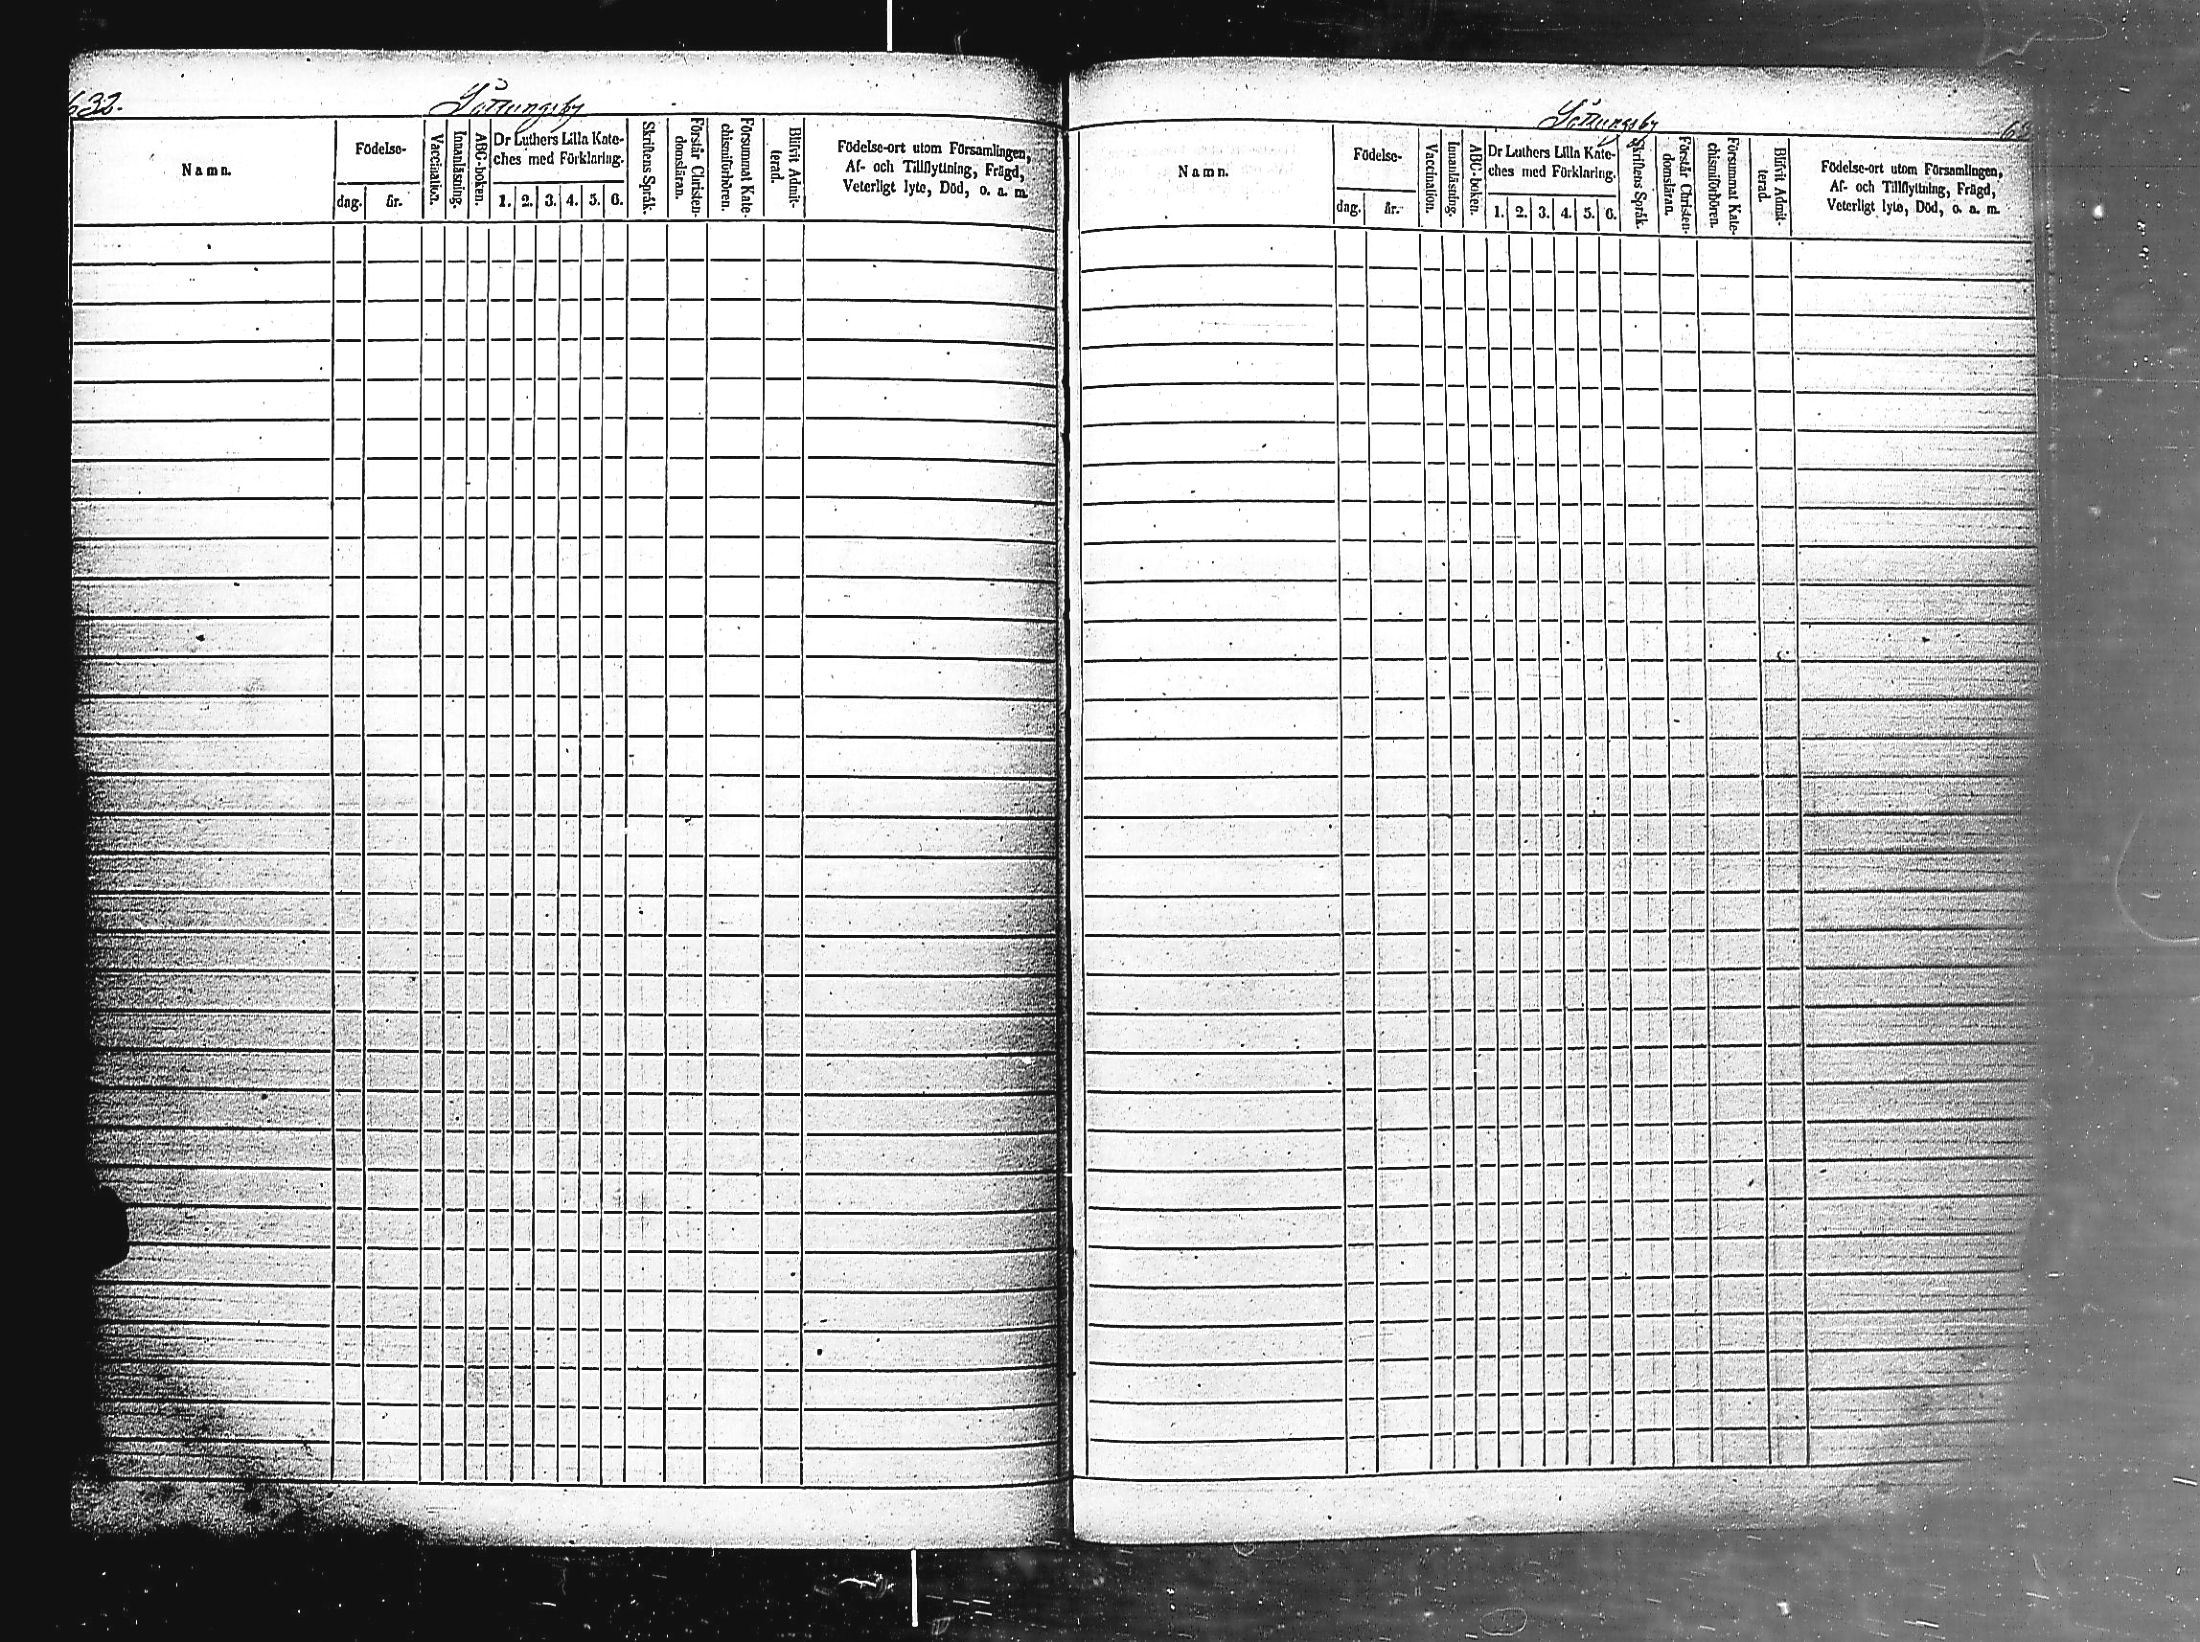 632.
Sottungsby
Namn.
Födelse-
dag.
år.
Vaccination.
Innanläsning.
ABC-boken.
Dr Luthers Lilla Kate-
ches med Förklaring.
1. 2. 3. 4. 5. 6.
Skriftens Språk.
Förstår Christen-
domsläran.
Försummat Kate-
chismiförhören.
Blifvit Admit-
terad.
Födelse-ort utom Församlingen,
Af- och Tillflyttning, Frägd,
Veterligt lyte, Död, o. a. m.
Sottungsby
Namn.
Födelse-
dag.
år.
Vaccination.
Innanläsning.
ABC-boken.
Dr Luthers Lilla Kate-
ches med Förklaring.
1. 2. 3. 4. 5. 6.
Skriftens Språk.
Förstår Christen-
domsläran.
Försummat Kate-
chismiförhören.
Blifvit Admit-
terad.
Födelse-ort utom Församlingen,
Af- och Tillflyttning, Frägd,
Veterligt lyte, Död, o. a. m.